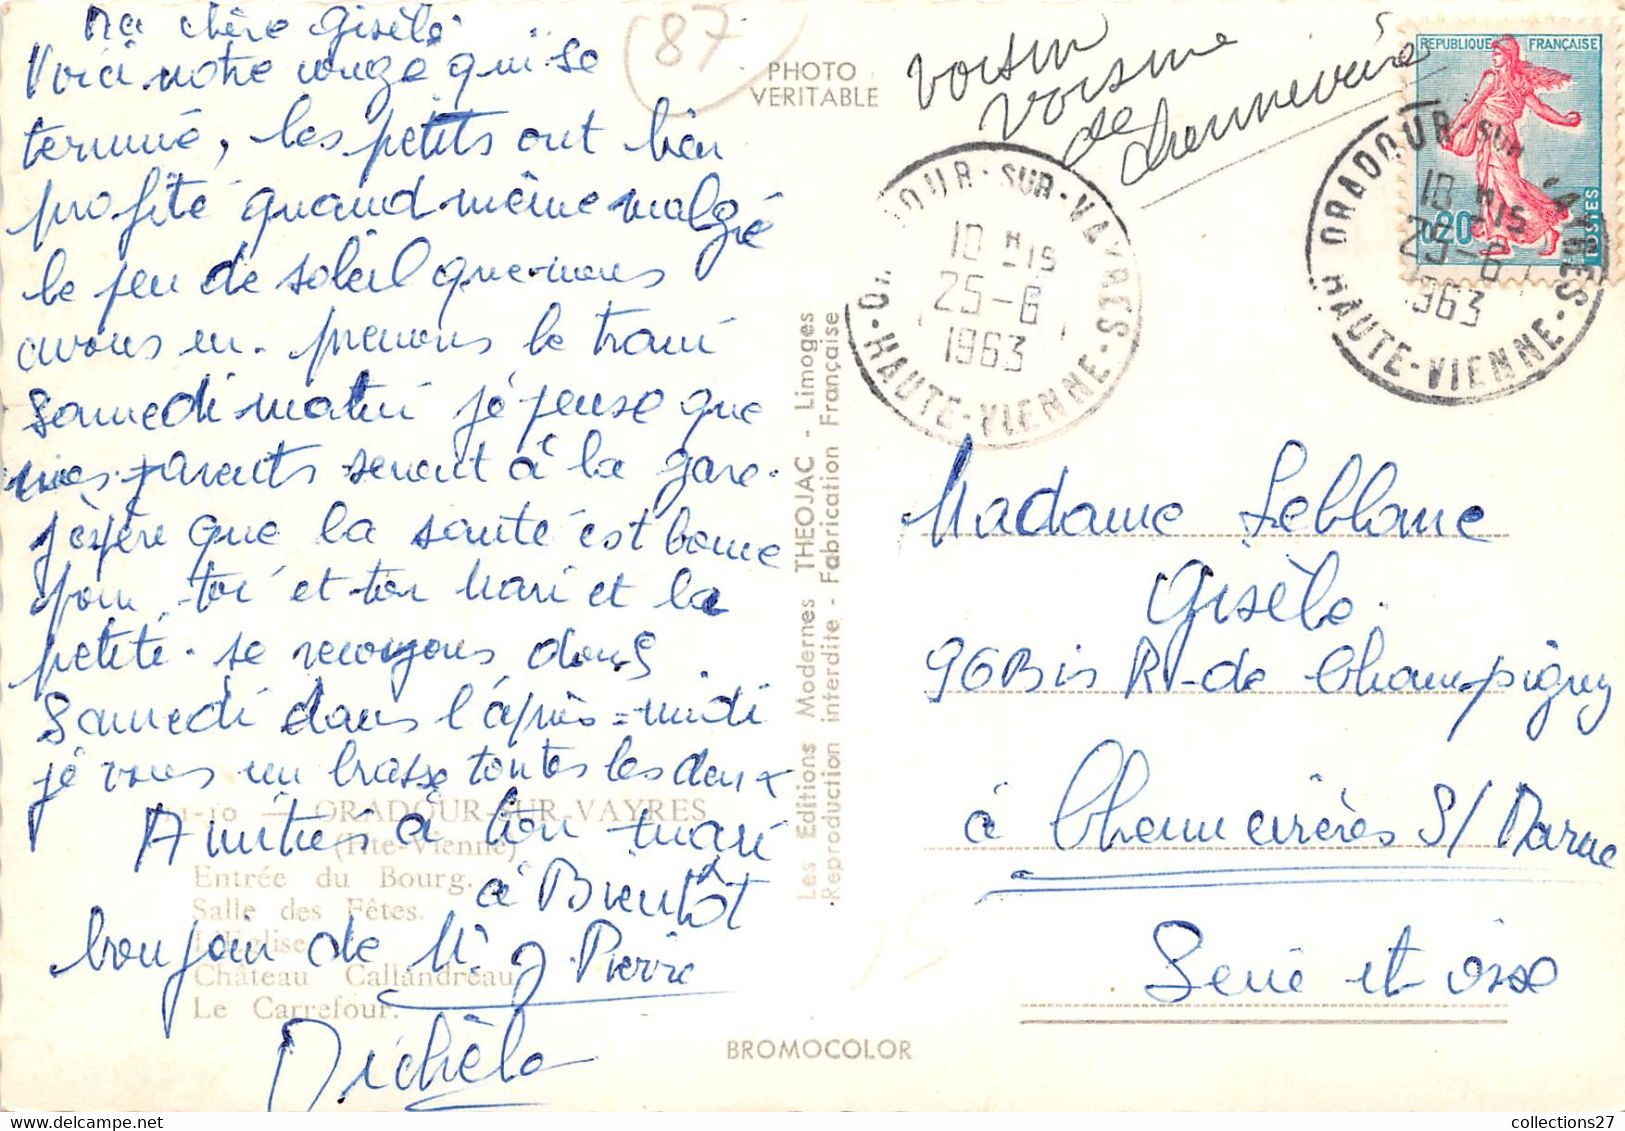 Ma chère Gisèle
Voici notre congé qui se
terminé, les petits ont bien
profité quand même malgré
le peu de soleil que nous
avons eu. prenons le train
Samedi matin je pense que
mes parents seront à la gare.
j'espère que la santé est bonne
pour toi et ton mari et la
petite. se revoyons donc
Samedi dans l'après-midi
je vous embrasse toutes les deux
Amitiés à ton mari
à Bientôt
bonjour de M. J. Pierre
Michèle
1-10 — ORADOUR-SUR-VAYRES
(Hte-Vienne)
Entrée du Bourg.
Salle des Fêtes.
L'Eglise
Château Callandreau
Le Carrefour.
87
PHOTO
VERITABLE
Les Editions Modernes THEOJAC - Limoges
Reproduction interdite - Fabrication Française
BROMOCOLOR
voisin
voisine
de
chennevière
OUR-SUR-VAYRES
10 H 15
25-6
1963
HAUTE-VIENNE
REPUBLIQUE FRANÇAISE
0,20
POSTES
ORADOUR-SUR-VAYRES
10 H 15
25-6
1963
HAUTE-VIENNE
Madame Leblanc
Gisèle.
96 Bis R. de Champigny
à Chennevières S/Marne
Seine et oise
collections27